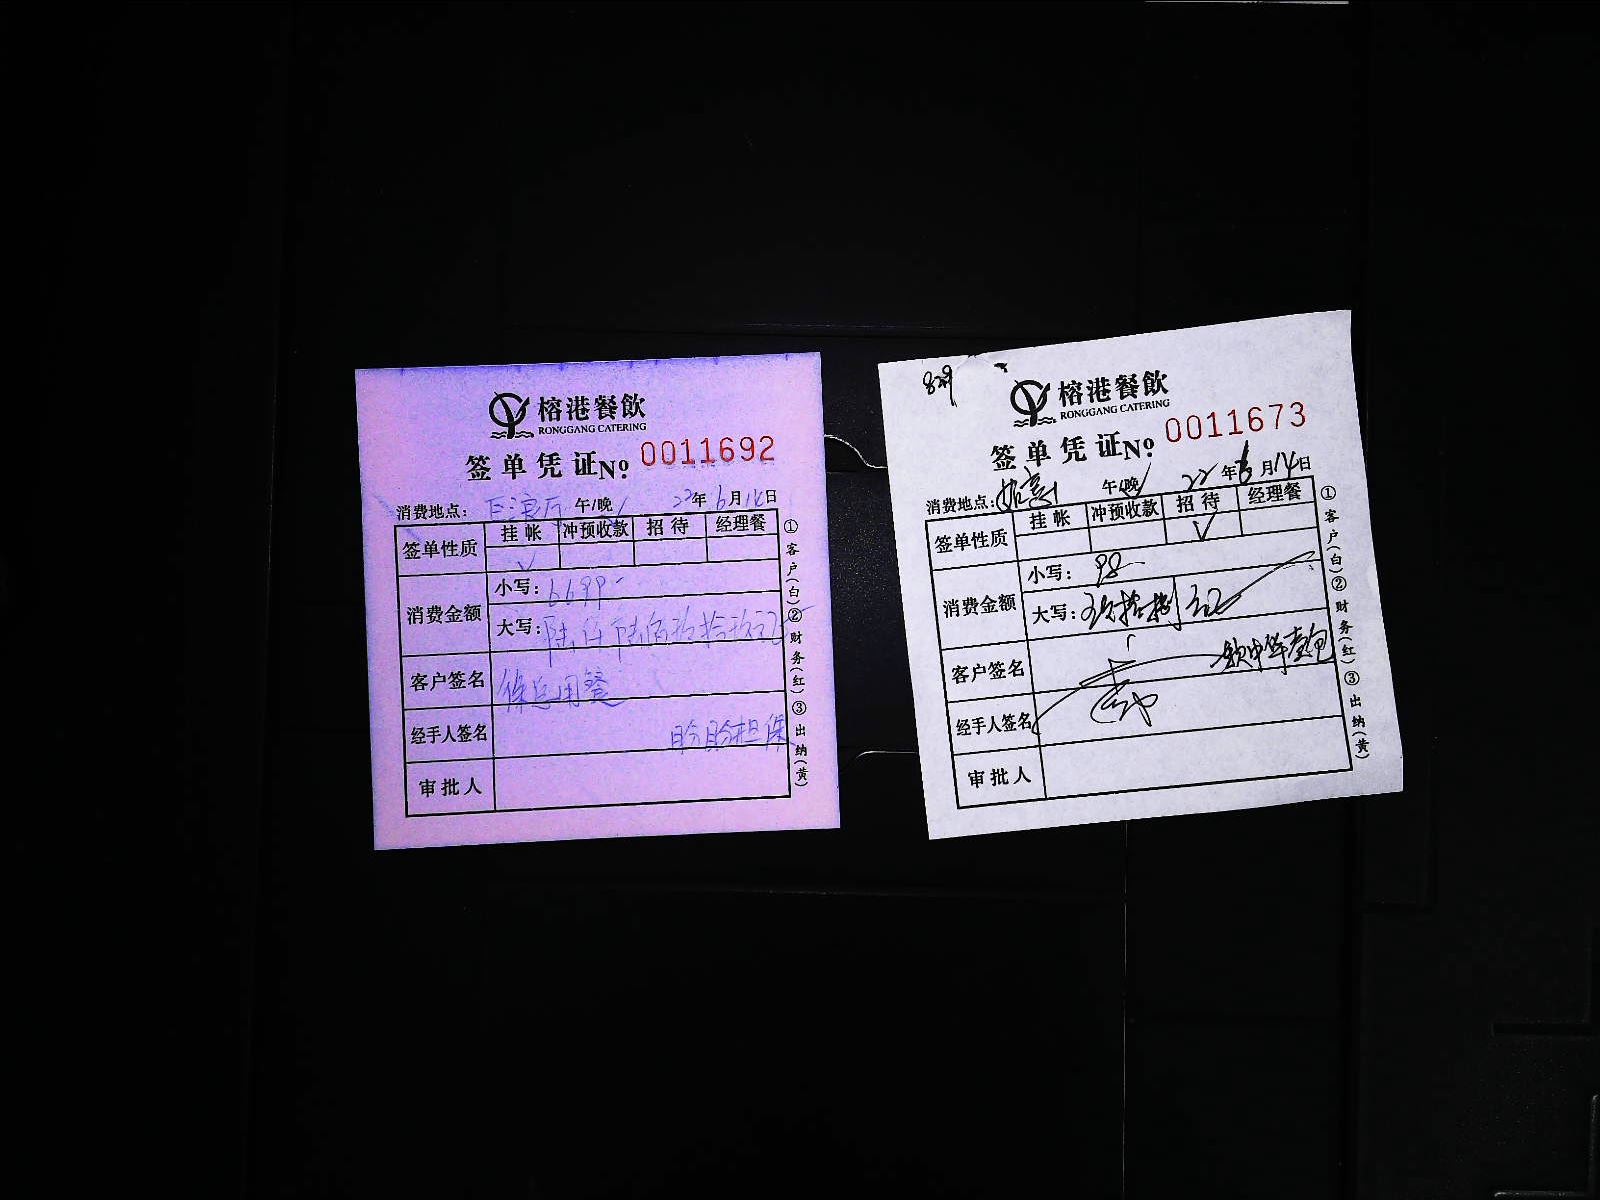 榕港餐飲
RONGGANG CATERING
签单凭证No 0011692
消费地点: 巨浪厅 午/晚 22年6月14日
签单性质 挂帐 冲预收款 招待 经理餐
√
消费金额 小写: 6699-
大写: 陆仟陆佰玖拾玖元
客户签名 总用餐
经手人签名 盼盼担保
审批人
①客户(白)②财务(红)③出纳(黄)
829
榕港餐飲
RONGGANG CATERING
签单凭证No 0011673
消费地点: 午/晚√ 22年6月14日
签单性质 挂帐 冲预收款 招待 经理餐
√
消费金额 小写: 98-
大写: 玖拾捌元
客户签名 软中华壹包
经手人签名
审批人
①客户(白)②财务(红)③出纳(黄)